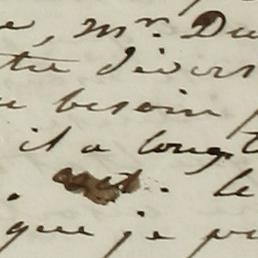 e, Mr. Du
tre divers
besoin
il a longt
. le
que je